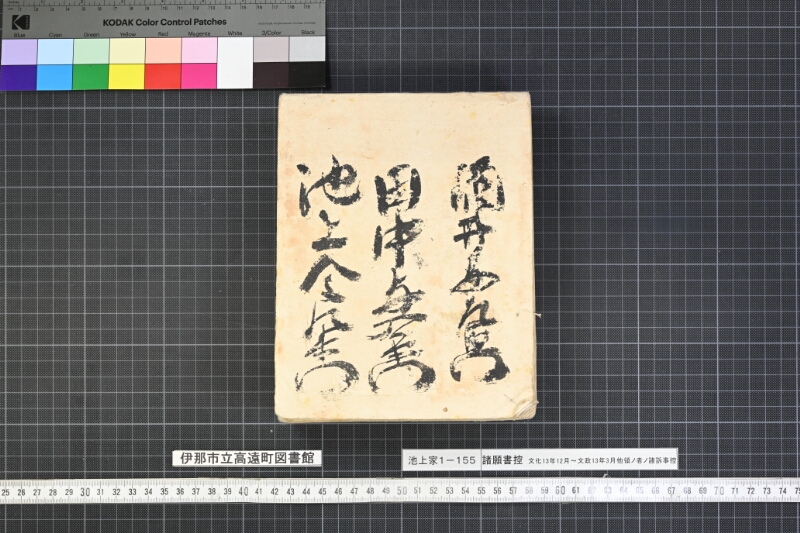 KODAK Color Control Patches
Blue Cyan Green Yellow Red Magenta White 3/Color Black
酒井
田中
池上
伊那市立高遠町図書館
池上家1-155 諸願書控 文化13年12月~文政13年3月他領ノ者ノ諸訴事控
25 26 27 28 29 30 31 32 33 34 35 36 37 38 39 40 41 42 43 44 45 46 47 48 49 50 51 52 53 54 55 56 57 58 59 60 61 62 63 64 65 66 67 68 69 70 71 72 73 74 75